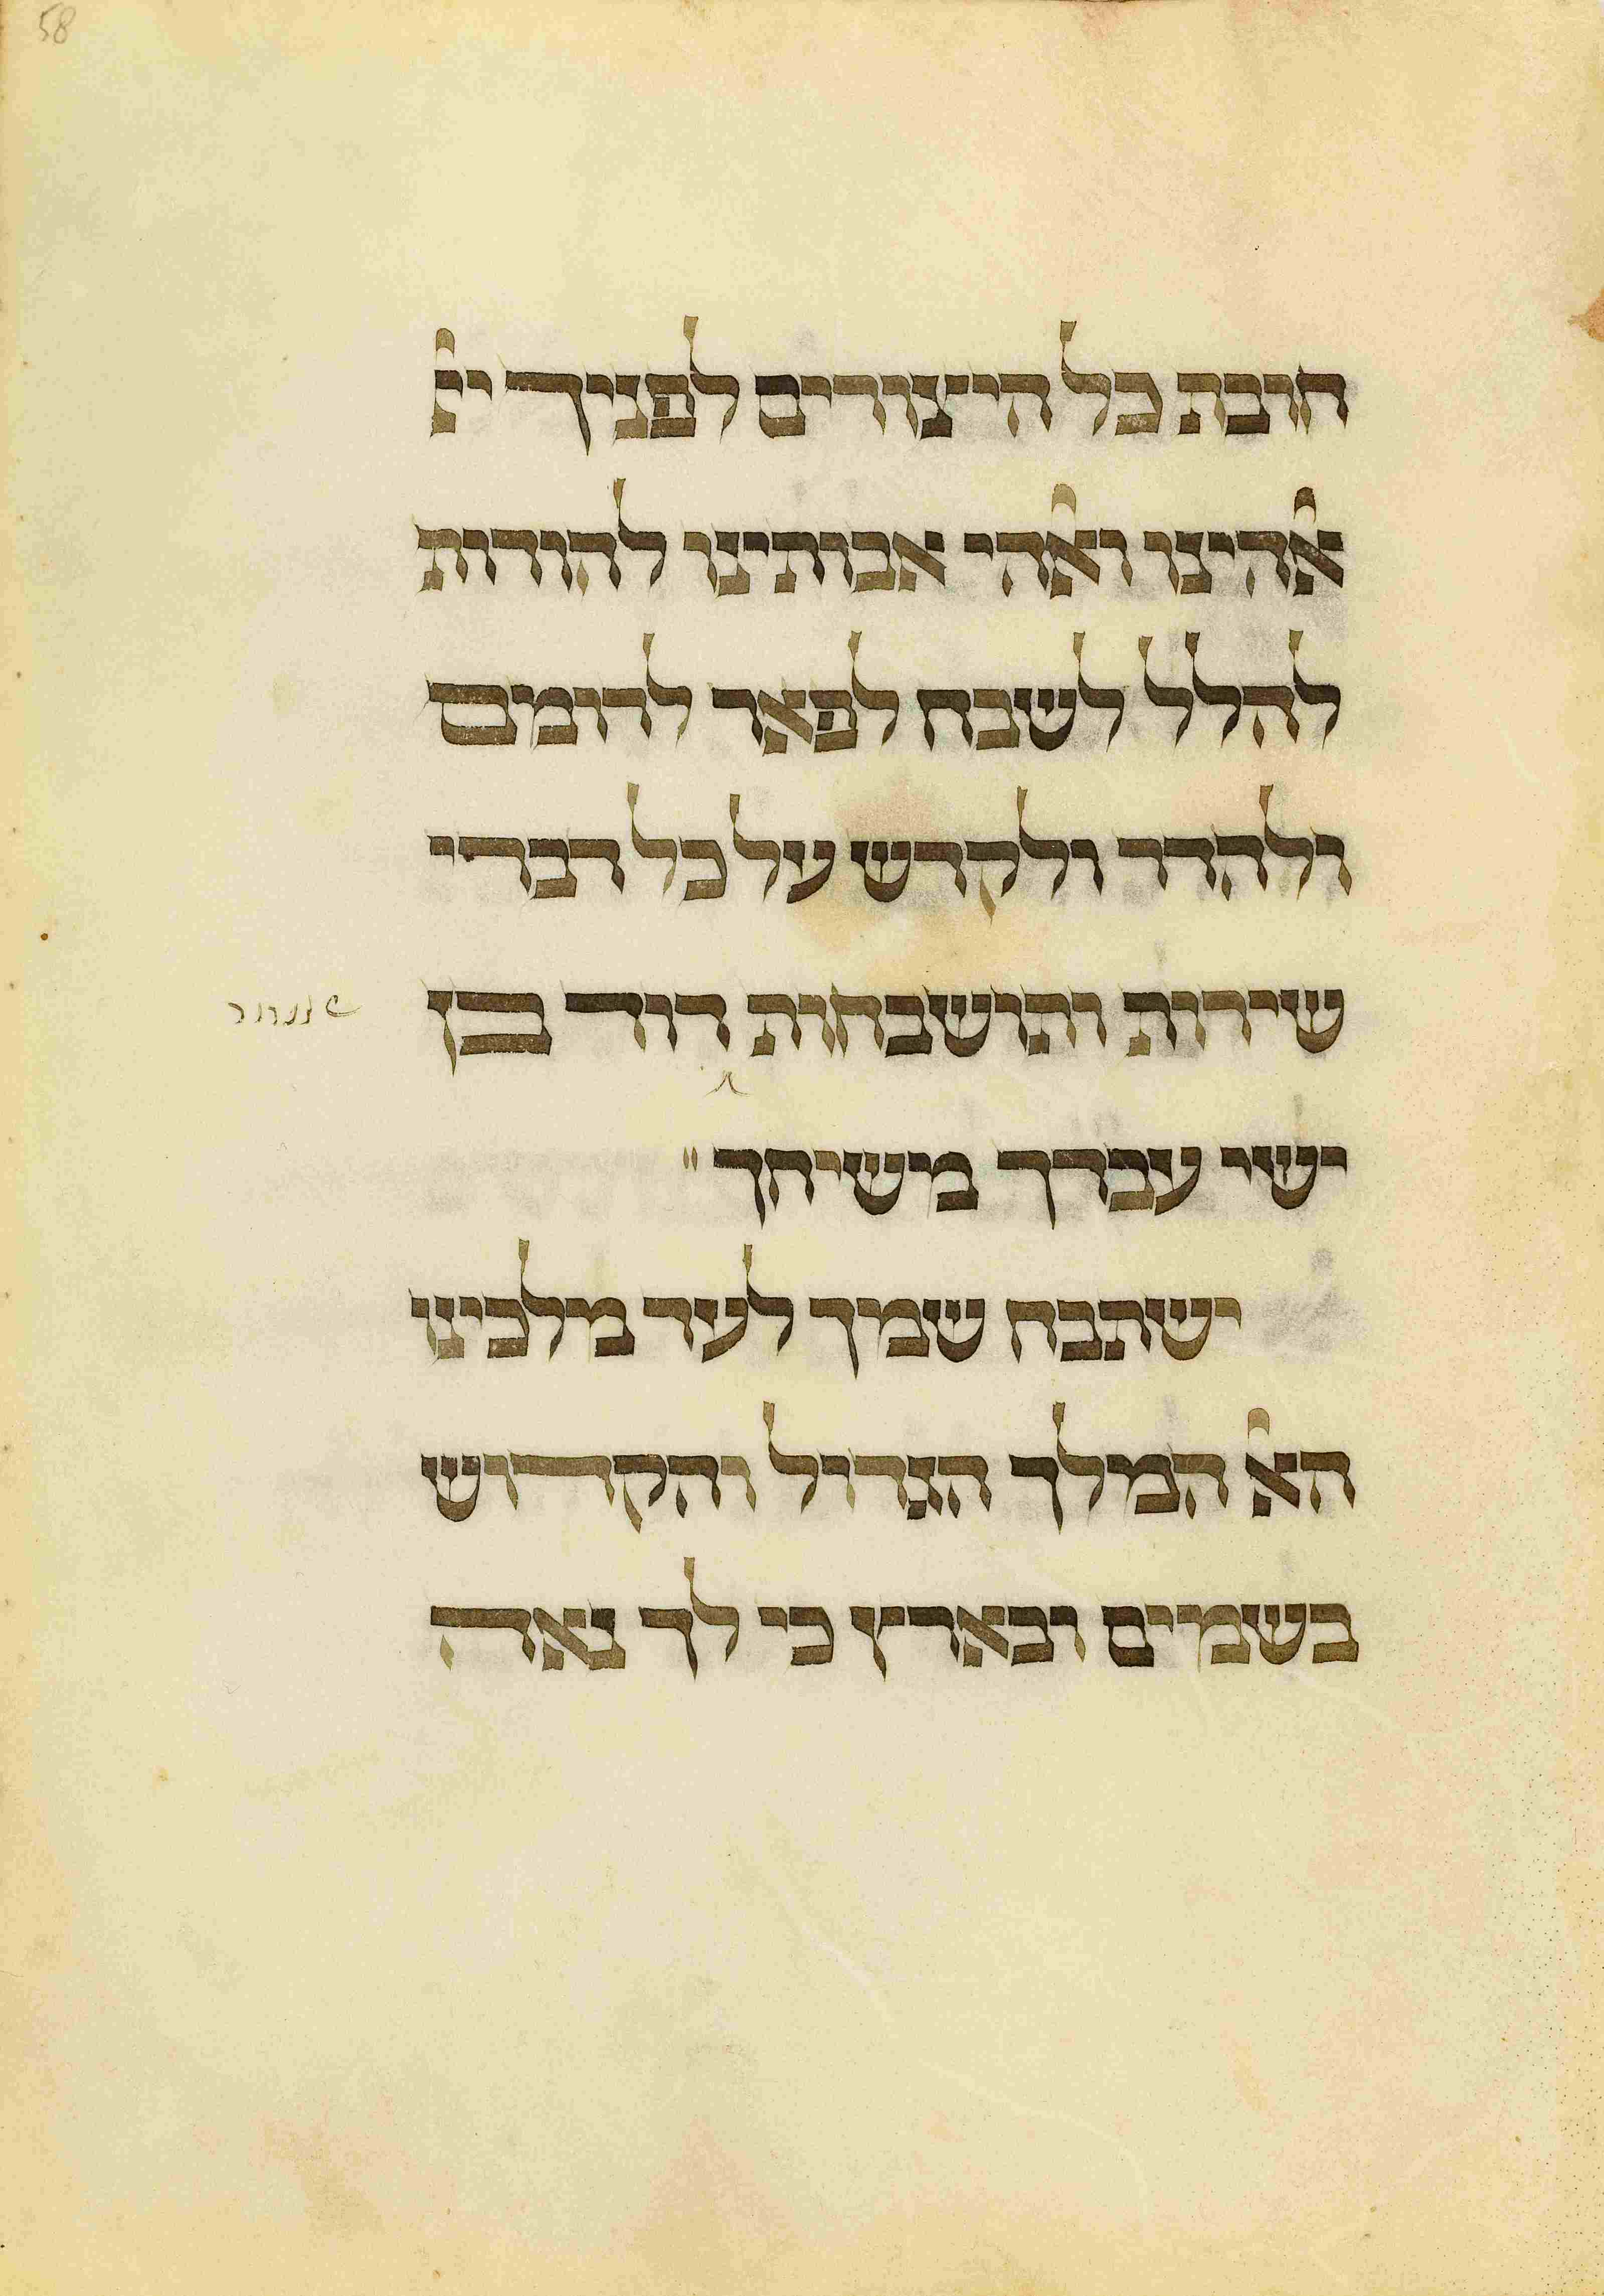 58
חובת כל היצורים לפניך יי
ﭏהינו וﭏהי אבותינו להודות
להלל לשבח לפאר לרומם
ולהדר ולקדש על כל דברי
שירות ותושבחות דוד בן
ישי עבדך משיחך "
ישתבח שמך לעד מלכינו
הﭏ המלך הגדול והקדוש
בשמים ובארץ כי לך נאה